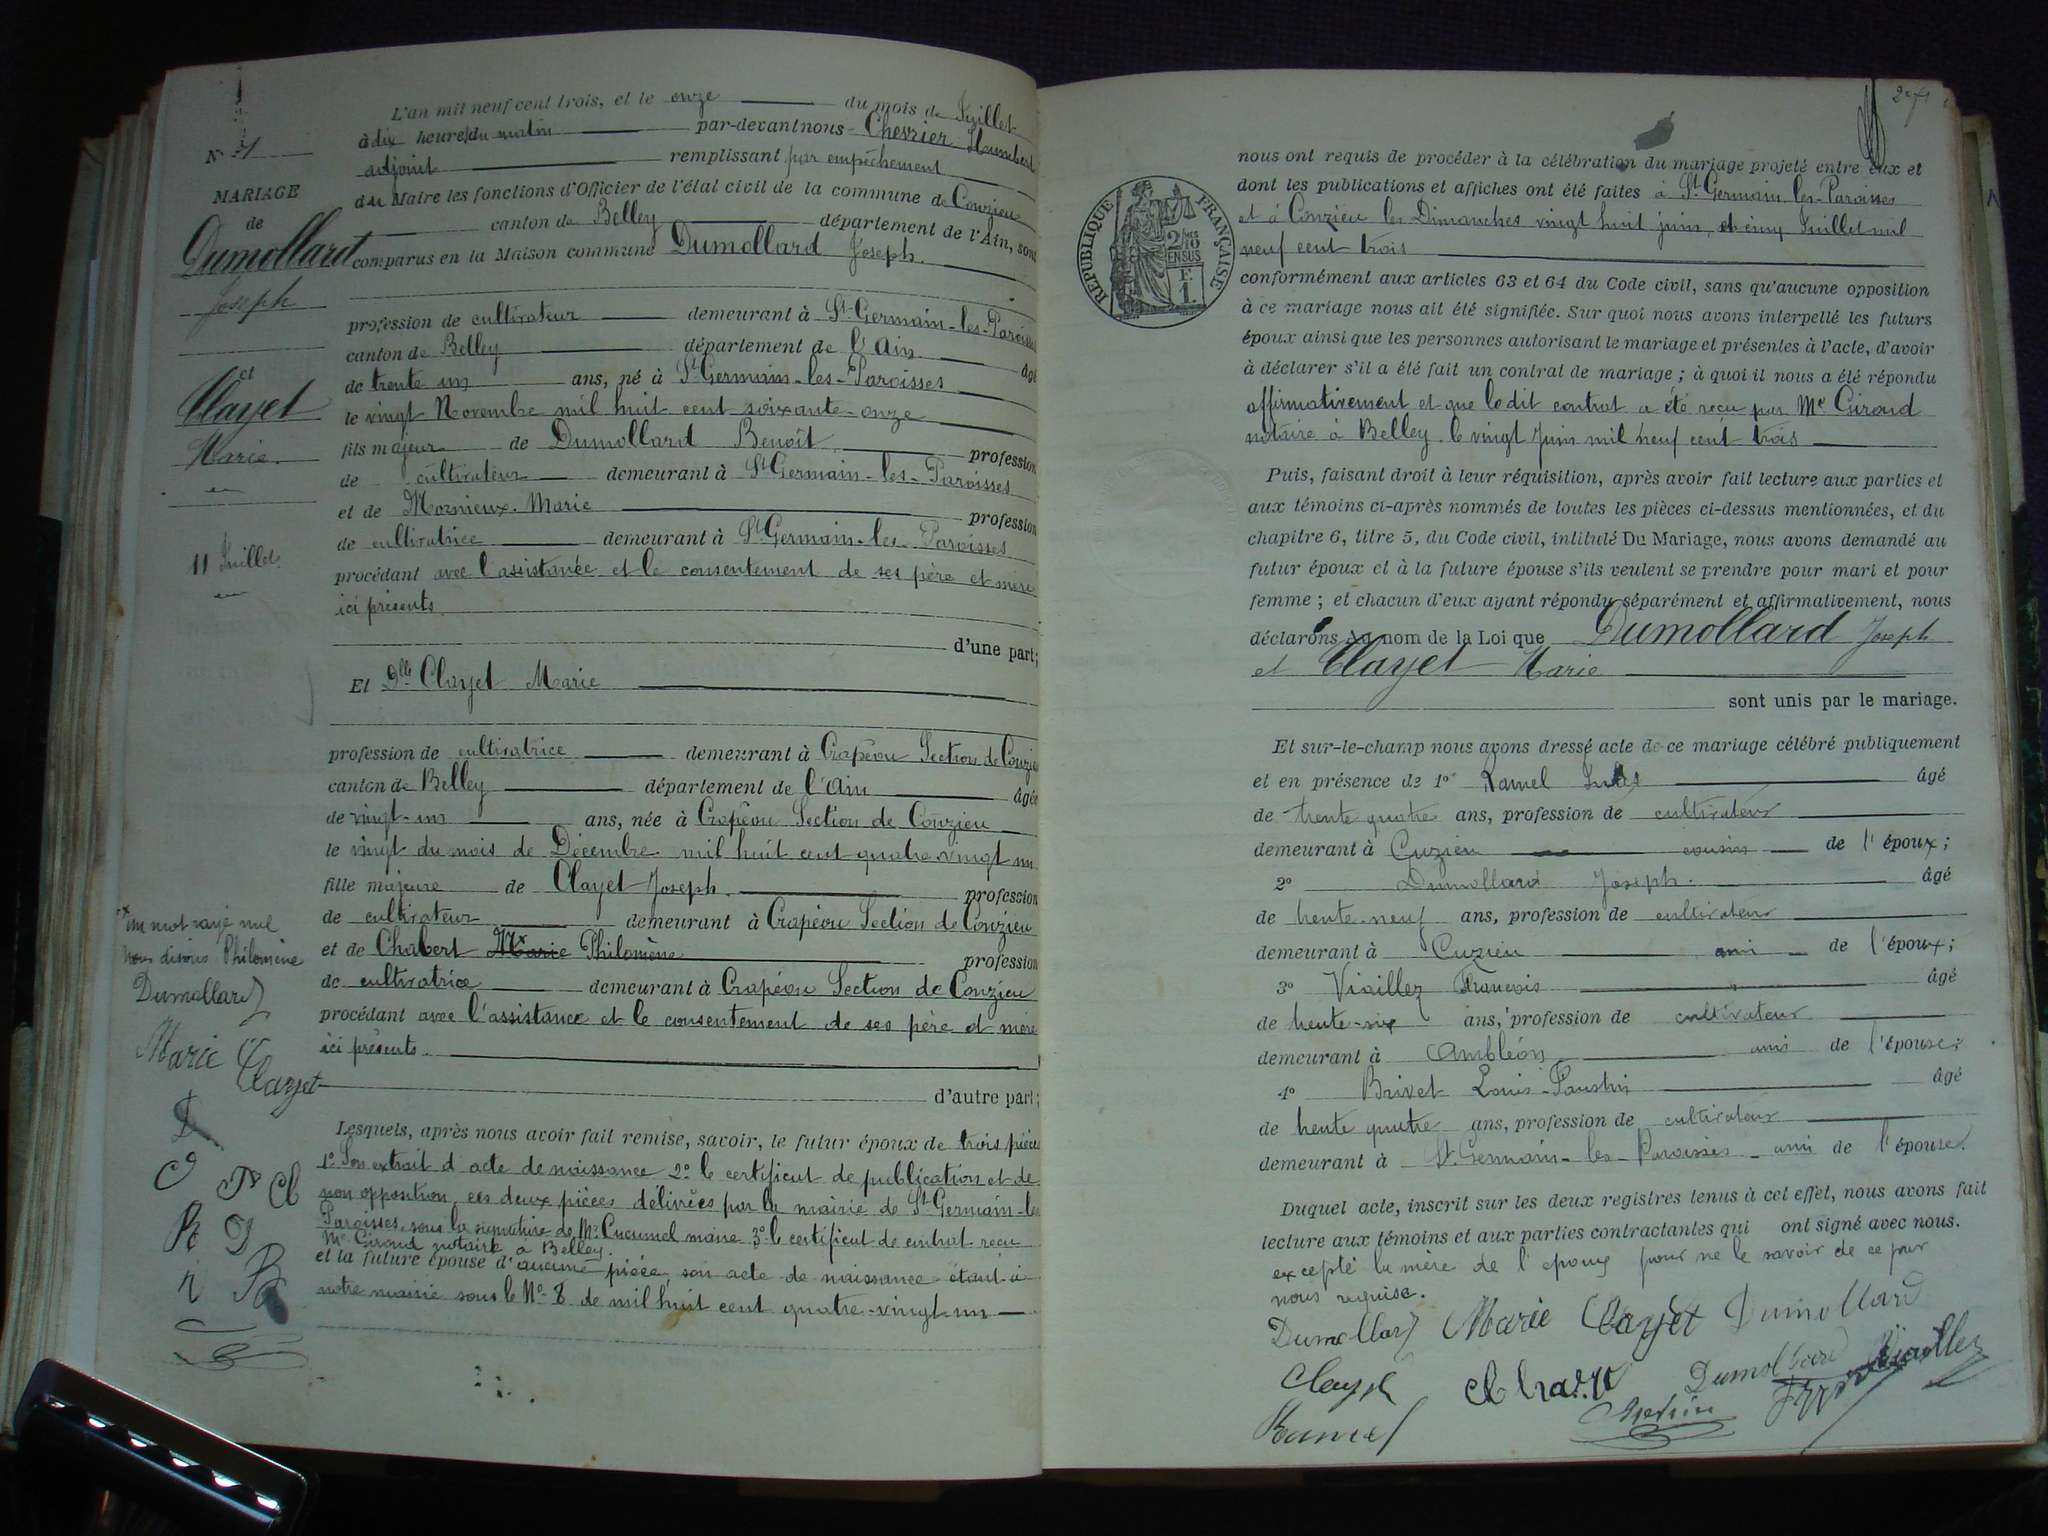 L'an mil neuf cent trois, et le onze du mois de Juillet
à dix heures du matin par-devant nous Chevrier Humbert
adjoint remplissant par empêchement
du Maire les fonctions d'Officier de l'état civil de la commune de Conzieu
canton de Belley département de l'Ain, sont
comparus en la Maison commune Dumollard Joseph
profession de cultivateur demeurant à St Germain-les-Paroisses
canton de Belley département de l'Ain âgé
de trente un ans, né à St Germain-les-Paroisses
le vingt Novembre mil huit cent soixante-onze
fils majeur de Dumollard Benoît profession
de cultivateur demeurant à St Germain-les-Paroisses
et de Mornieux Marie profession
de cultivatrice demeurant à St Germain-les-Paroisses
procédant avec l'assistance et le consentement de ses père et mère
ici présents
d'une part;
Et Dlle Clayet Marie
profession de cultivatrice demeurant à Crapéou Section de Conzieu
canton de Belley département de l'Ain âgée
de vingt-un ans, née à Crapéou Section de Conzieu
le vingt du mois de Décembre mil huit cent quatre vingt un
fille majeure de Clayet Joseph profession
de cultivateur demeurant à Crapéou Section de Conzieu
et de Chabert Marie Philomène profession
de cultivatrice demeurant à Crapéou Section de Conzieu
procédant avec l'assistance et le consentement de ses père et mère
ici présents
d'autre part;
Lesquels, après nous avoir fait remise, savoir, le futur époux de trois pièces
1º Son extrait d'acte de naissance 2º le certificat de publication et de
non opposition, ces deux pièces délivrées par la mairie de St Germain-les
Paroisses, sous la signature de Mr maire 3º le certificat de contrat reçu
Me Giroud notaire à Belley.
et la future épouse d'aucune pièce, son acte de naissance étant à
notre mairie sous le Nº 8 de mil huit cent quatre-vingt-un
Nº
MARIAGE
de
Dumollard
Joseph
et
Clayet
Marie
11 Juillet
un mot rayé nul
nous disons Philomène
Dumollard
Marie Clayet
271
RÉPUBLIQUE FRANÇAISE
2/10 EN SUS
F.
1.
nous ont requis de procéder à la célébration du mariage projeté entre eux et
dont les publications et affiches ont été faites à St Germain-les-Paroisses
et à Conzieu les Dimanches vingt huit juin et cinq Juillet mil
neuf cent trois
conformément aux articles 63 et 64 du Code civil, sans qu'aucune opposition
à ce mariage nous ait été signifiée. Sur quoi nous avons interpellé les futurs
époux ainsi que les personnes autorisant le mariage et présentes à l'acte, d'avoir
à déclarer s'il a été fait un contrat de mariage; à quoi il nous a été répondu
affirmativement et que le dit contrat a été reçu par Me Giroud
notaire à Belley le vingt Juin mil neuf cent trois
Puis, faisant droit à leur réquisition, après avoir fait lecture aux parties et
aux témoins ci-après nommés de toutes les pièces ci-dessus mentionnées, et du
chapitre 6, titre 5, du Code civil, intitulé Du Mariage, nous avons demandé au
futur époux et à la future épouse s'ils veulent se prendre pour mari et pour
femme; et chacun d'eux ayant répondu séparément et affirmativement, nous
déclarons au nom de la Loi que Dumollard Joseph
et Clayet Marie
sont unis par le mariage.
Et sur-le-champ nous avons dressé acte de ce mariage célébré publiquement
et en présence de 1º Ramel Jules âgé
de trente quatre ans, profession de cultivateur
demeurant à Cuzieu cousin de l'époux;
2º Dumollard Joseph âgé
de trente-neuf ans, profession de cultivateur
demeurant à Cuzieu ami de l'époux;
3º Viallez François âgé
de trente-six ans, profession de cultivateur
demeurant à Ambléon ami de l'épouse;
4º Brivet Louis-Faustin âgé
de trente quatre ans, profession de cultivateur
demeurant à St Germain-les-Paroisses ami de l'épouse.
Duquel acte, inscrit sur les deux registres tenus à cet effet, nous avons fait
lecture aux témoins et aux parties contractantes qui ont signé avec nous.
excepté la mère de l'époux pour ne le savoir de ce par
nous requise.
Dumollard Marie Clayet Dumollard
Clayet Dumollard
Ramel